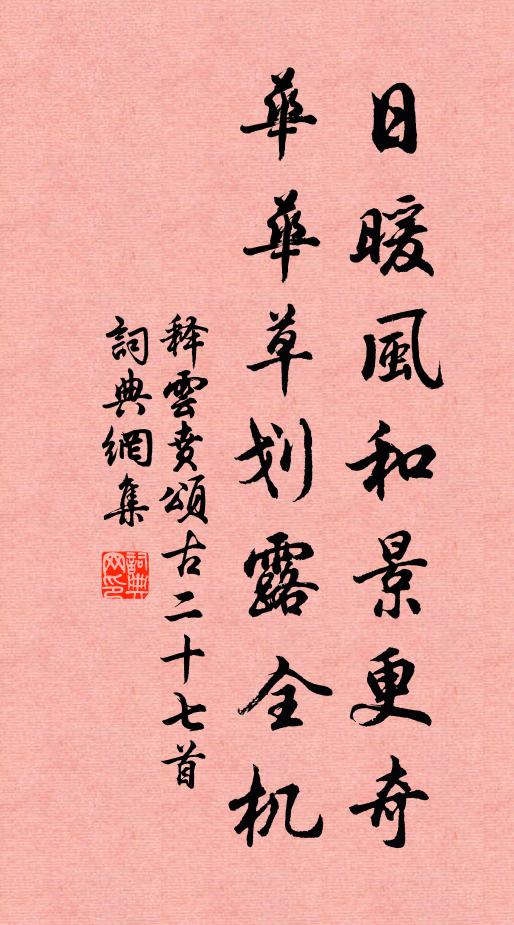 日暖風和景更奇
華華草划露全机
释雲賁頌古二十七首
詞典網集
詞典網印